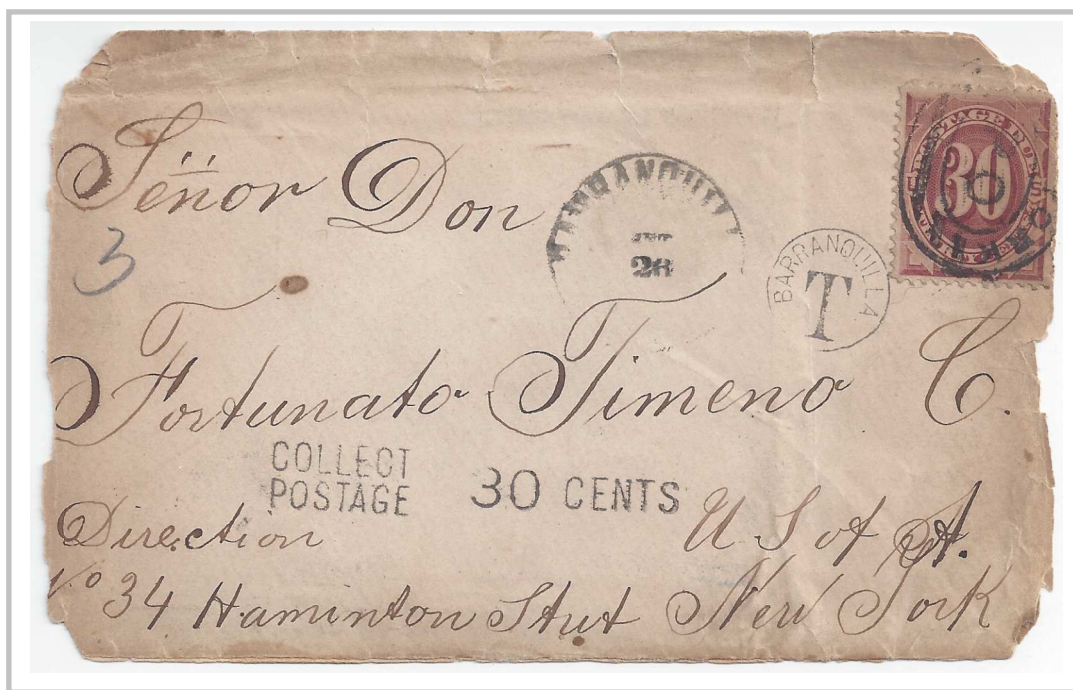 Señor Don
BARRANQUILLA
26
BARRANQUILLA
T
30
3
Fortunato Jimeno C.
COLLECT
POSTAGE
30 CENTS
Direction
U S of A.
Nº 34 Haminton Stret New York